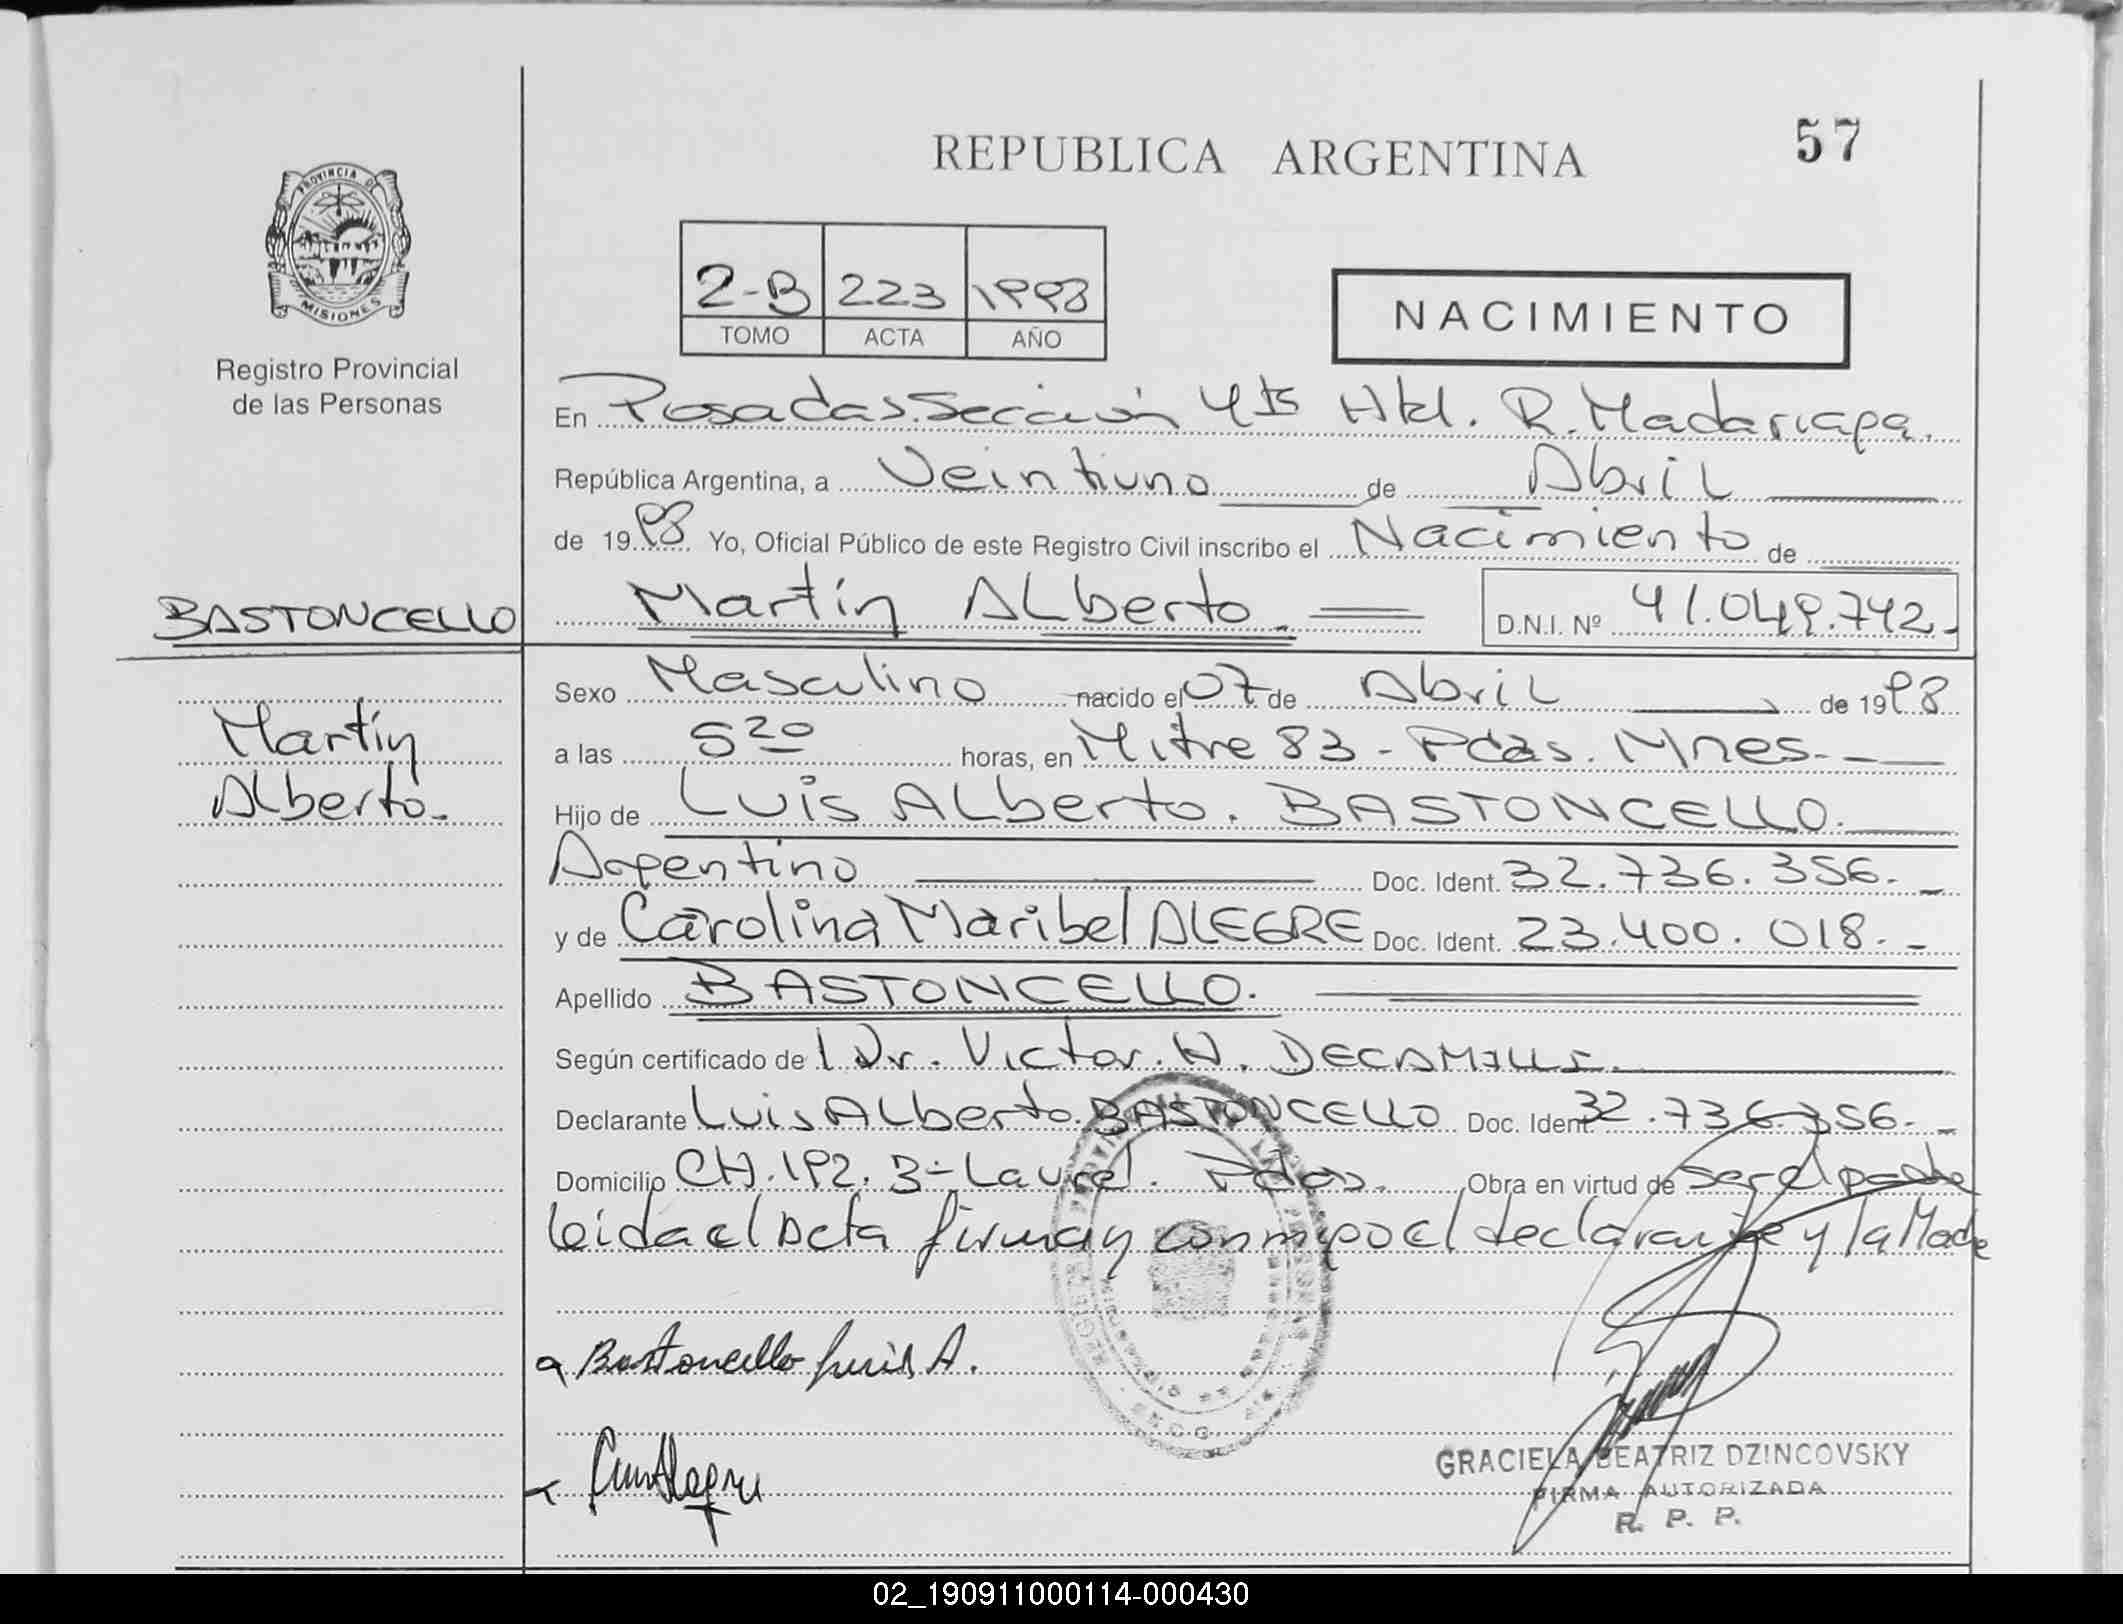 REPUBLICA ARGENTINA
57
PROVINCIA DE
MISIONES
Registro Provincial
de las Personas
2-B 223 1998
TOMO ACTA AÑO
NACIMIENTO
En Posadas. Sección 4ta Htal. R. Madariaga.
República Argentina, a Veintiuno de Abril
de 1998 Yo, Oficial Público de este Registro Civil inscribo el Nacimiento de
BASTONCELLO
Martín Alberto.
D.N.I. Nº 41.049.742.-
Martín
Alberto.
Sexo Masculino nacido el 07 de Abril de 1998
a las 5 20 horas, en Mitre 83 - Pdas. Mnes.-
Hijo de Luis Alberto. BASTONCELLO.
Argentino Doc. Ident. 32.736.356.-
y de Carolina Maribel ALEGRE Doc. Ident. 23.400.018.-
Apellido BASTONCELLO.
Según certificado de l Dr. Victor. H. DECAMILLI.
Declarante Luis Alberto. BASTONCELLO Doc. Ident. 32.736.356.-
Domicilio CH. 192. B- Laurel. Pdas. Obra en virtud de ser el padre
leida el Acta firman conmigo el declarante y la Madre
Bastoncello Luis A.
GRACIELA BEATRIZ DZINCOVSKY
FIRMA AUTORIZADA
R. P. P.
02_190911000114-000430